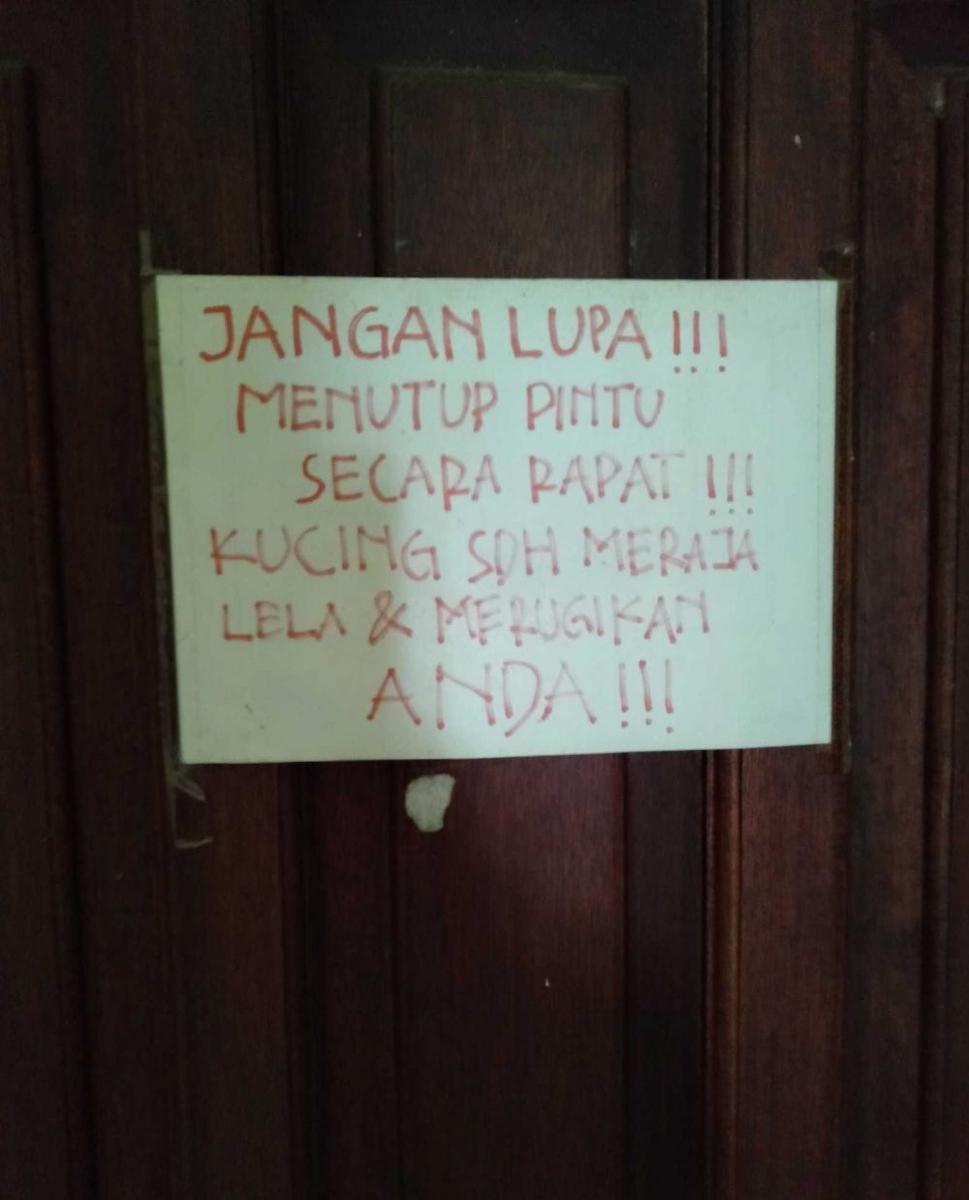 JANGAN LUPA !!!
MENUTUP PINTU
SECARA RAPAT !!!
KUCING SDH MERAJA
LELA & MERUGIKAN
ANDA !!!